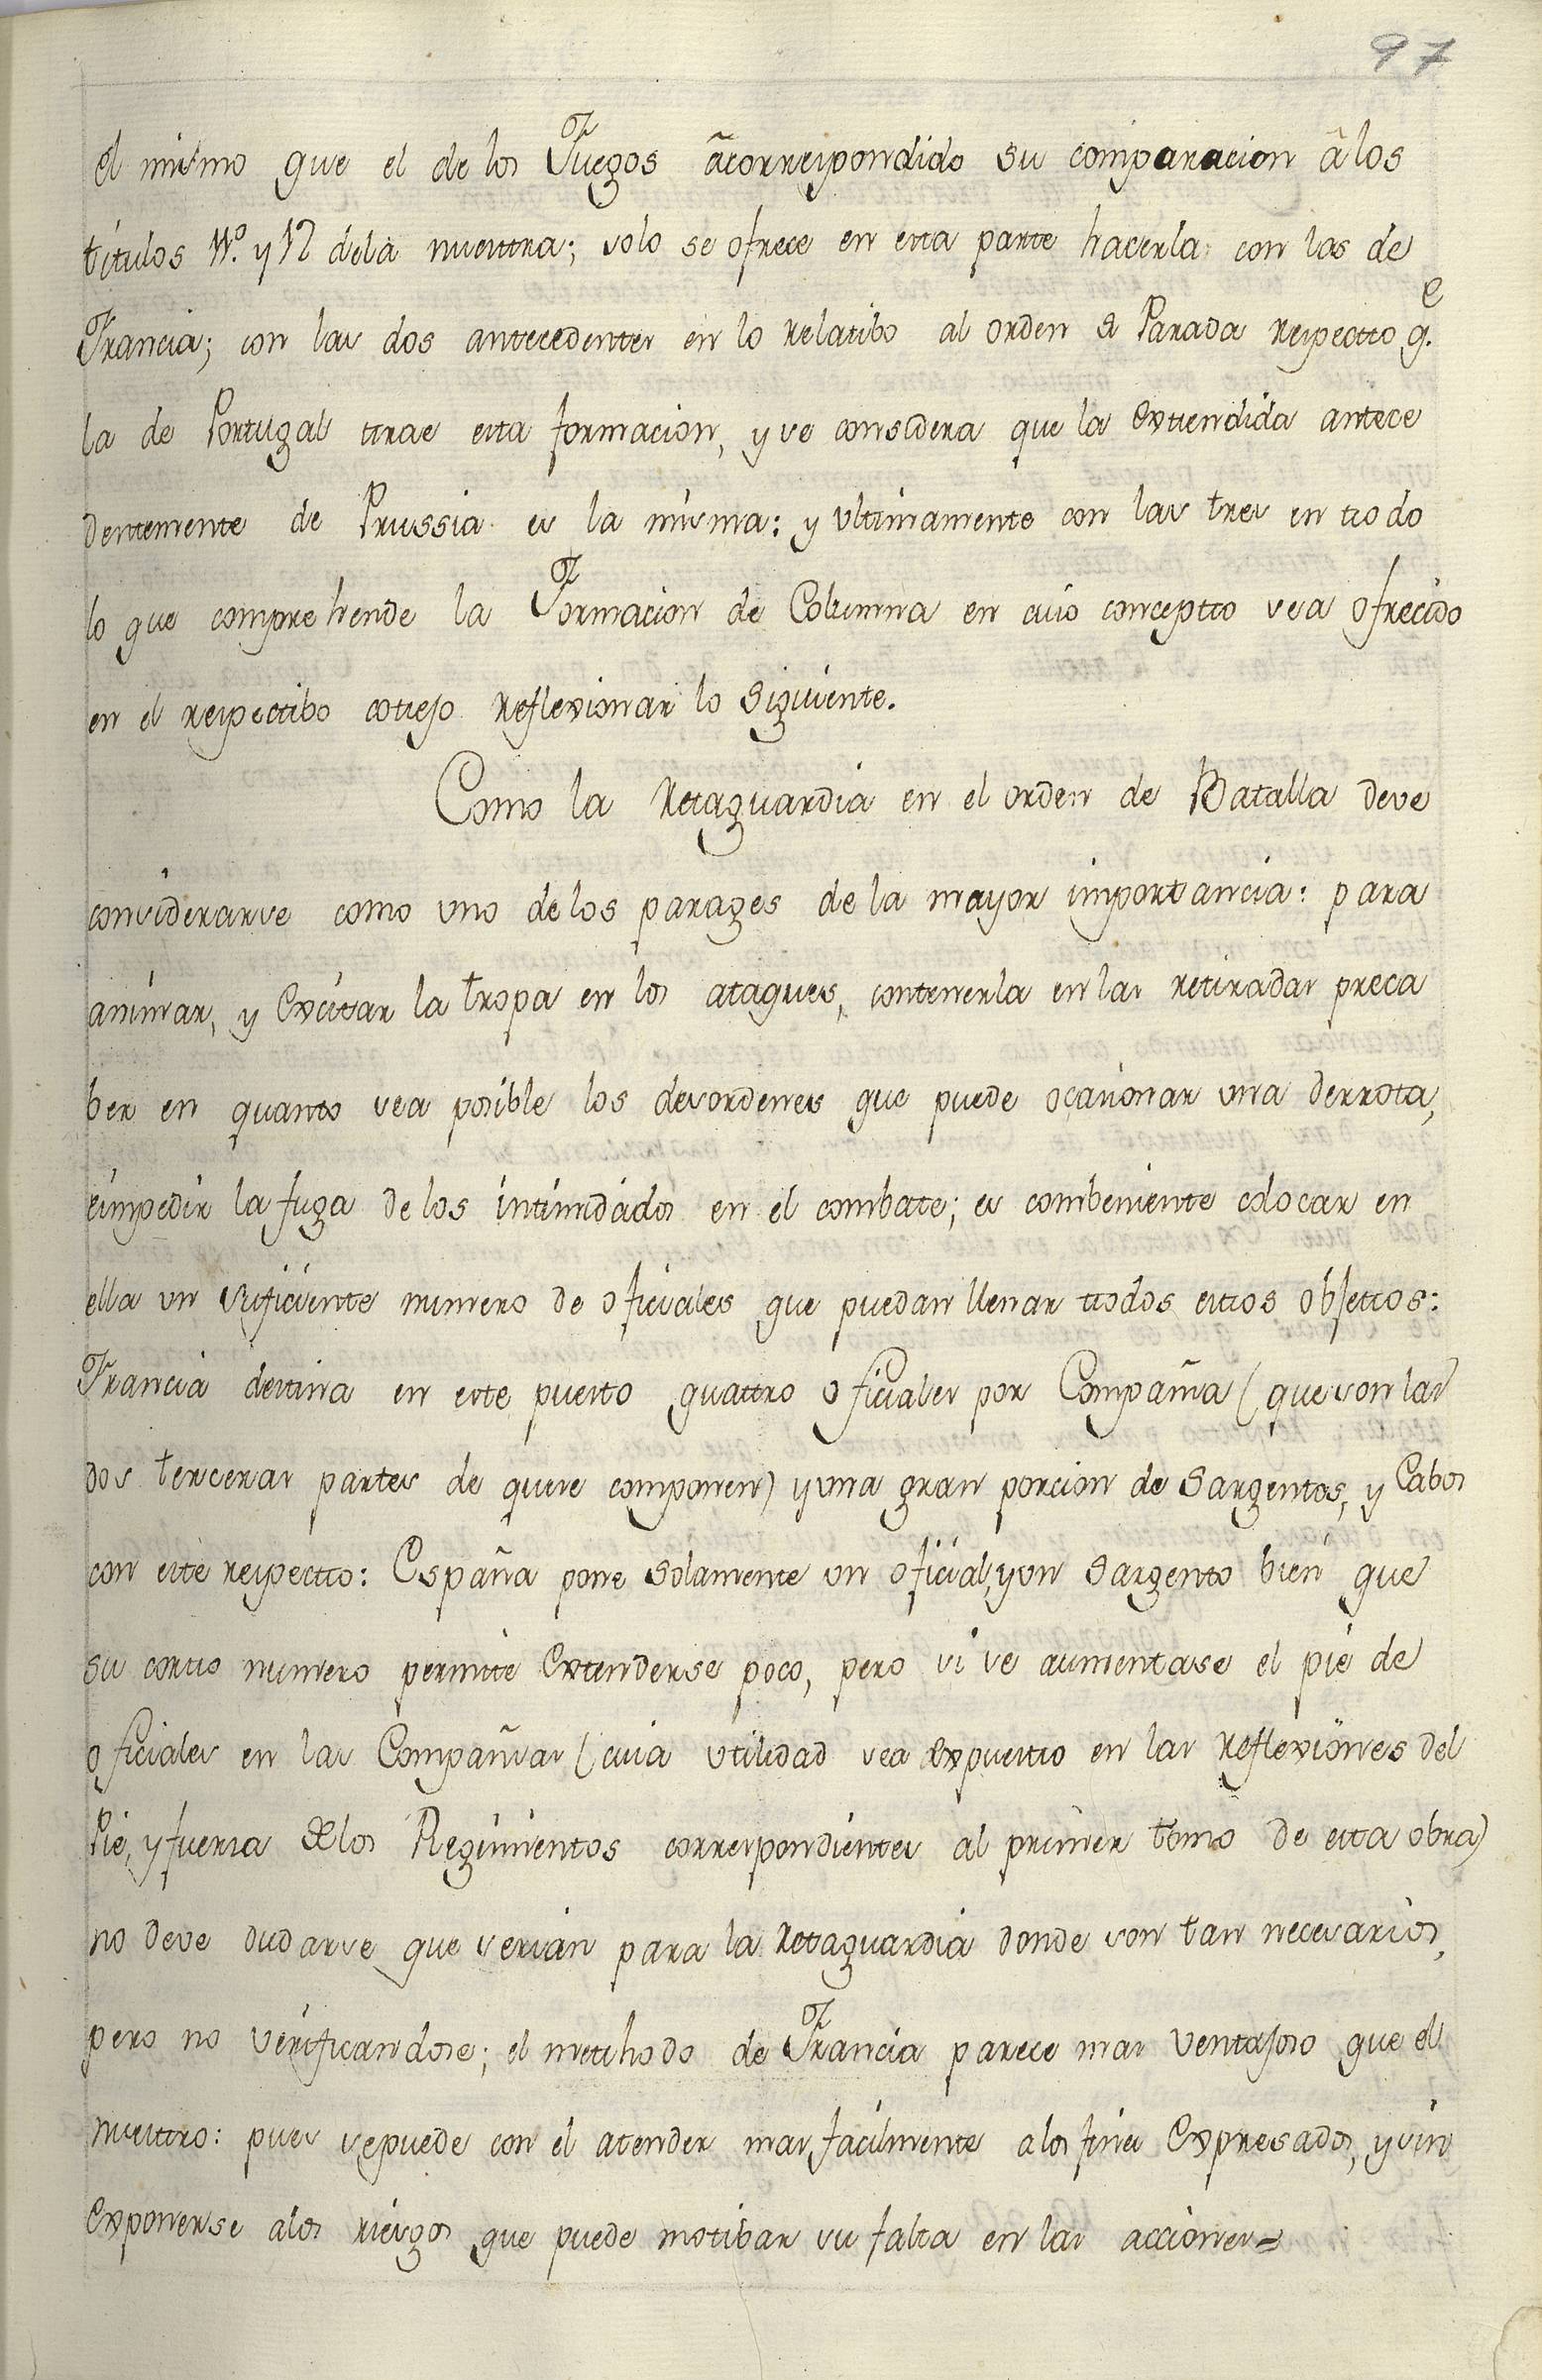 97
el mismo que el de los Fuegos ãcorrespondido su comparacion â los
titulos 11º. y 12 dela nuestra; solo se ofrece en esta parte hacerla con las de
Francia; con las dos antecedentes en lo relatibo al orden de Parada respecto q.e
la de Portugal trae esta formacion, y se considera que la extendida antece
dentemente de Prussia es la misma: y ultimamente con las tres en todo
lo que comprehende la Formacion de Columna en cuio concepto sea ofrecido
en el respectibo cotejo reflexionar lo siguiente.
Como la Retaguardia en el orden de Batalla deve
considerarse como uno delos parages de la mayor importancia: para
animar, y excitar la tropa en los ataques, contenerla en las retiradas preca
ber en quanto sea posible los desordenes que puede ocasionar una derrota,
eimpedir la fuga delos intimidados en el combate; es combeniente colocar en
ella un suficiente numero de oficiales que puedan llenar todos estos objetos:
Francia destina en este puesto quattro oficiales por Compañia (que son las
dos terceras partes de quese componen) y una gran porcion de Sargentos, y Cabos
con este respecto: España pone solamente un oficial, y un Sargento bien que
su corto numero permite extenderse poco, pero si se aumentase el pie de
oficiales en las Compañias (cuia utilidad sea expuesto en las reflexiones del
Pie, y fuerza delos Regimientos correspondientes al primer tomo de esta obra)
no deve dudarse que serian para la retaguardia donde son tan necesarios,
pero no verificandose; el methodo de Francia parece mas ventajoso que el
nuestro: pues sepuede con el atender mas facilmente alos fines expresados, y sin
exponerse alos riesgos que puede motibar su falta en las acciones=